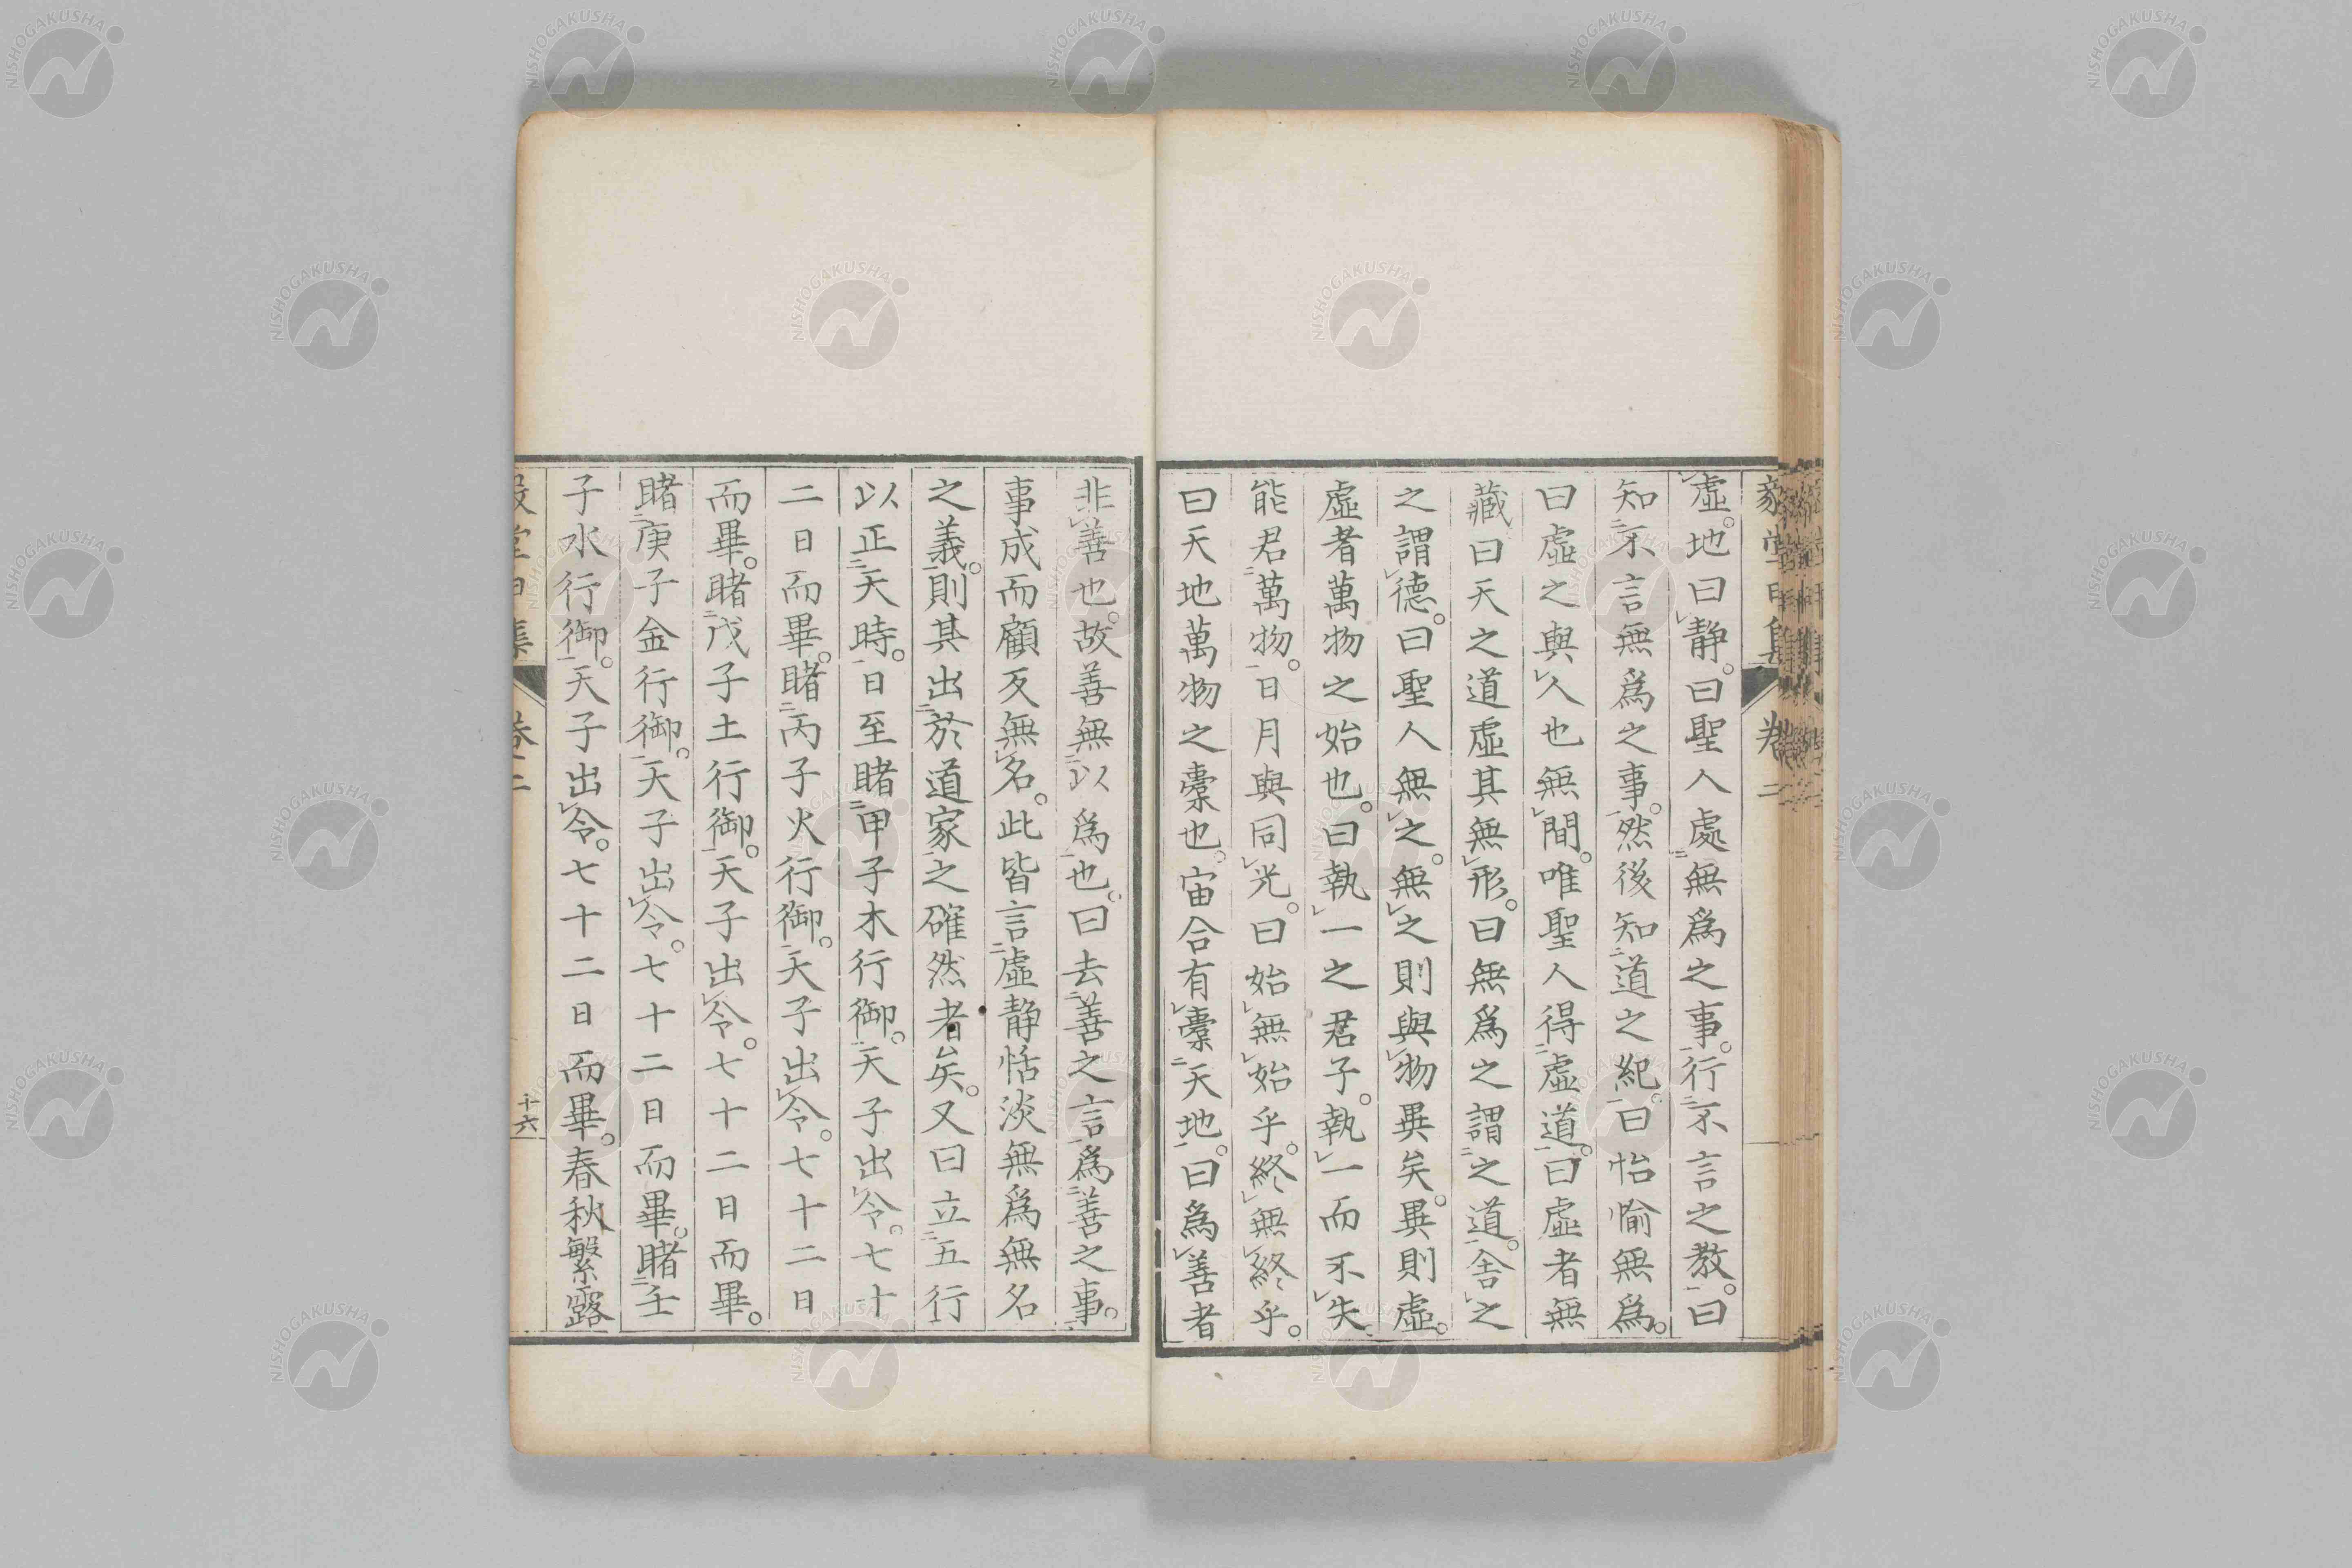 虛。地曰靜。曰聖人處無爲之事。行不言之教。曰
知不言無爲之事。然後知道之紀。曰怡愉無爲。
曰虛之與人也無間。唯聖人得虛道。曰虛者無
藏曰天之道虛其無形。曰無爲之謂之道。舍之
之謂德。曰聖人無之。無之則與物異矣。異則虛。
虛者萬物之始也。曰執一之君子。執一而不失
能君萬物。日月與同光。曰始無始乎。終無終乎。
曰天地萬物之橐也。宙合有橐天地。曰爲善者
非善也。故善無以爲也。曰去善之言爲善之事。
事成而顧反無名。此皆言虛靜恬淡無爲無名
之義。則其出於道家之確然者矣。又曰立五行
以正天時。日至睹甲子木行御。天子出令。七十
二日而畢。睹丙子火行御。天子出令。七十二日
而畢。睹戊子土行御。天子出令。七十二日而畢。
睹庚子金行御。天子出令。七十二日而畢。睹壬
子水行御。天子出令。七十二日而畢。春秋繁露
卷二
十六
NISHOGAKUSHA